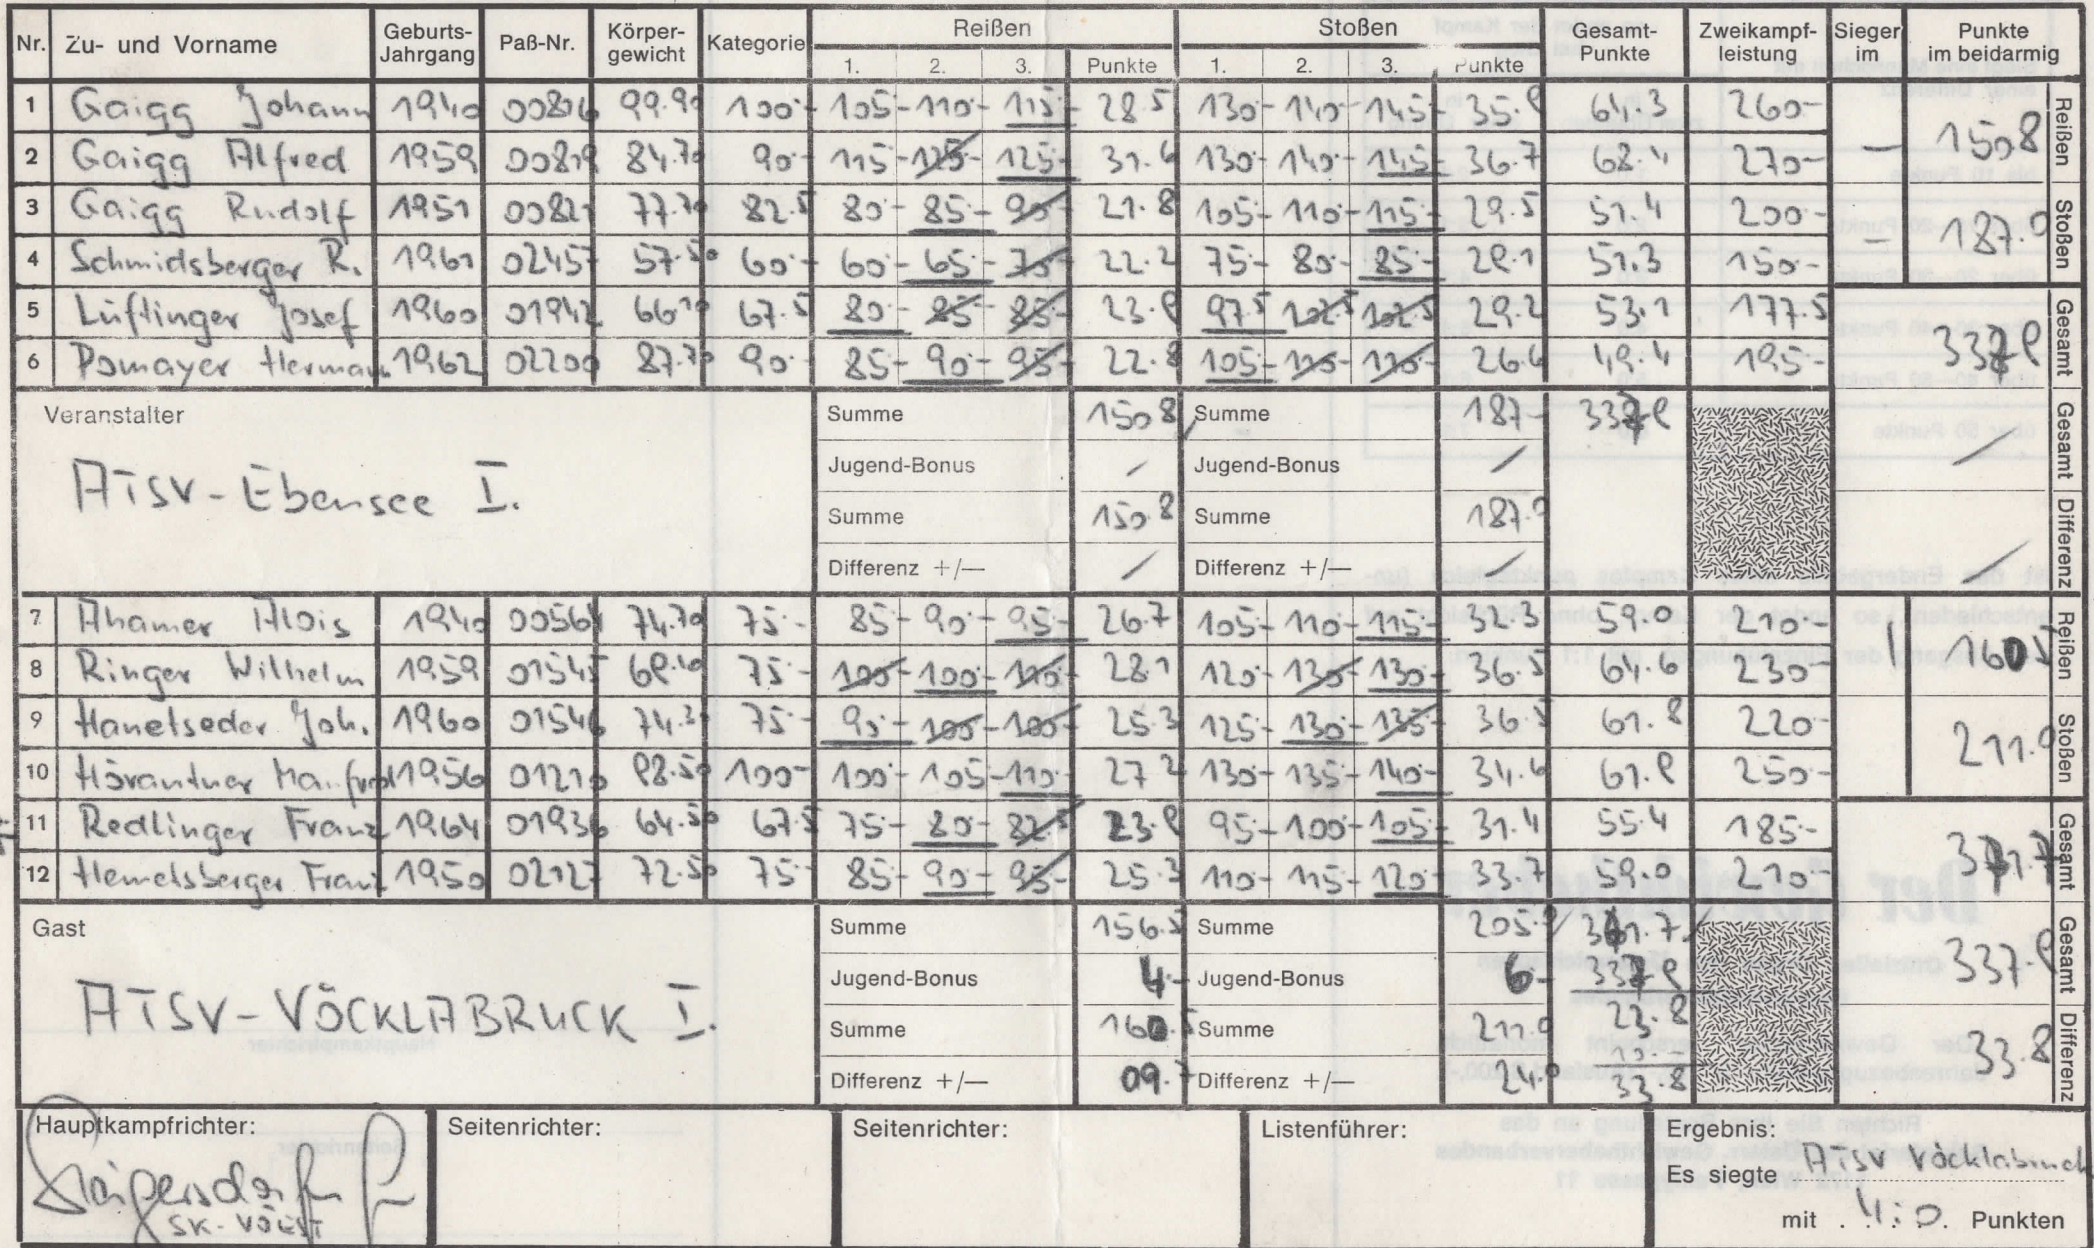 Nr. Zu- und Vorname Geburts-Jahrgang Paß-Nr. Körper-gewicht Kategorie Reißen Stoßen Gesamt-Punkte Zweikampf-leistung Sieger im Punkte im beidarmig
1. 2. 3. Punkte 1. 2. 3. Punkte
1 Gaigg Johann 1940 00816 99.90 100.- 105- 110- 115- 28.5 130- 140- 145- 35.8 64.3 260-
2 Gaigg Alfred 1959 00819 84.70 90.- 115- 125- 125- 31.6 130- 140- 145- 36.7 68.4 270-
3 Gaigg Rudolf 1951 00821 77.70 82.5 80- 85- 90- 21.8 105- 110- 115- 29.5 51.4 200-
4 Schmidsberger R. 1961 02457 57.50 60.- 60- 65- 70- 22.2 75- 80- 85- 29.1 51.3 150-
5 Lüftinger Josef 1960 01942 66.10 67.5 80- 85- 85- 23.8 97.5 102.5 102.5 29.2 53.1 177.5
6 Pomayer Herman 1962 02200 87.70 90.- 85- 90- 95- 22.8 105- 110- 110- 26.6 49.4 195-
Reißen — 150.8
Stoßen — 187.0
Gesamt 337.8
Veranstalter
ATSV-Ebensee I.
Summe 150.8 Summe 187.- 337.8
Jugend-Bonus / Jugend-Bonus /
Summe 150.8 Summe 187.0
Differenz +/— / Differenz +/— /
Gesamt /
Differenz /
7 Ahamer Alois 1940 00561 74.70 75.- 85- 90- 95- 26.7 105- 110- 115- 32.3 59.0 210-
8 Ringer Wilhelm 1959 01545 69.10 75.- 100- 100- 110- 28.1 120- 130- 130- 36.5 64.6 230-
9 Hanetseder Joh. 1960 01546 74.30 75.- 90- 100- 100- 25.3 125- 130- 135- 36.5 61.8 220-
10 Hörantner Manfred 1956 01210 98.50 100- 100- 105- 110- 27.2 130- 135- 140- 34.6 61.8 250-
11 Redlinger Franz 1964 01936 64.50 67.5 75- 80- 82.5 23.8 95- 100- 105- 31.4 55.4 185-
12 Hemetsberger Franz 1950 02127 72.50 75- 85- 90- 95- 25.3 110- 115- 120- 33.7 59.0 210-
Reißen 1 160.5
Stoßen 1 211.0
Gesamt 371.7
Gast
ATSV-VÖCKLABRUCK I.
Summe 156.5 Summe 205.0 361.7
Jugend-Bonus 4.- Jugend-Bonus 6.- 337.8
Summe 160.5 Summe 211.0 23.8
10.-
Differenz +/— 09.7 Differenz +/— 24.0 33.8
Gesamt 337.8
Differenz 33.8
Hauptkampfrichter: Seitenrichter: Seitenrichter: Listenführer: Ergebnis:
SK-VÖEST
Es siegte ATSV Vöcklabruck
mit 4:0 Punkten